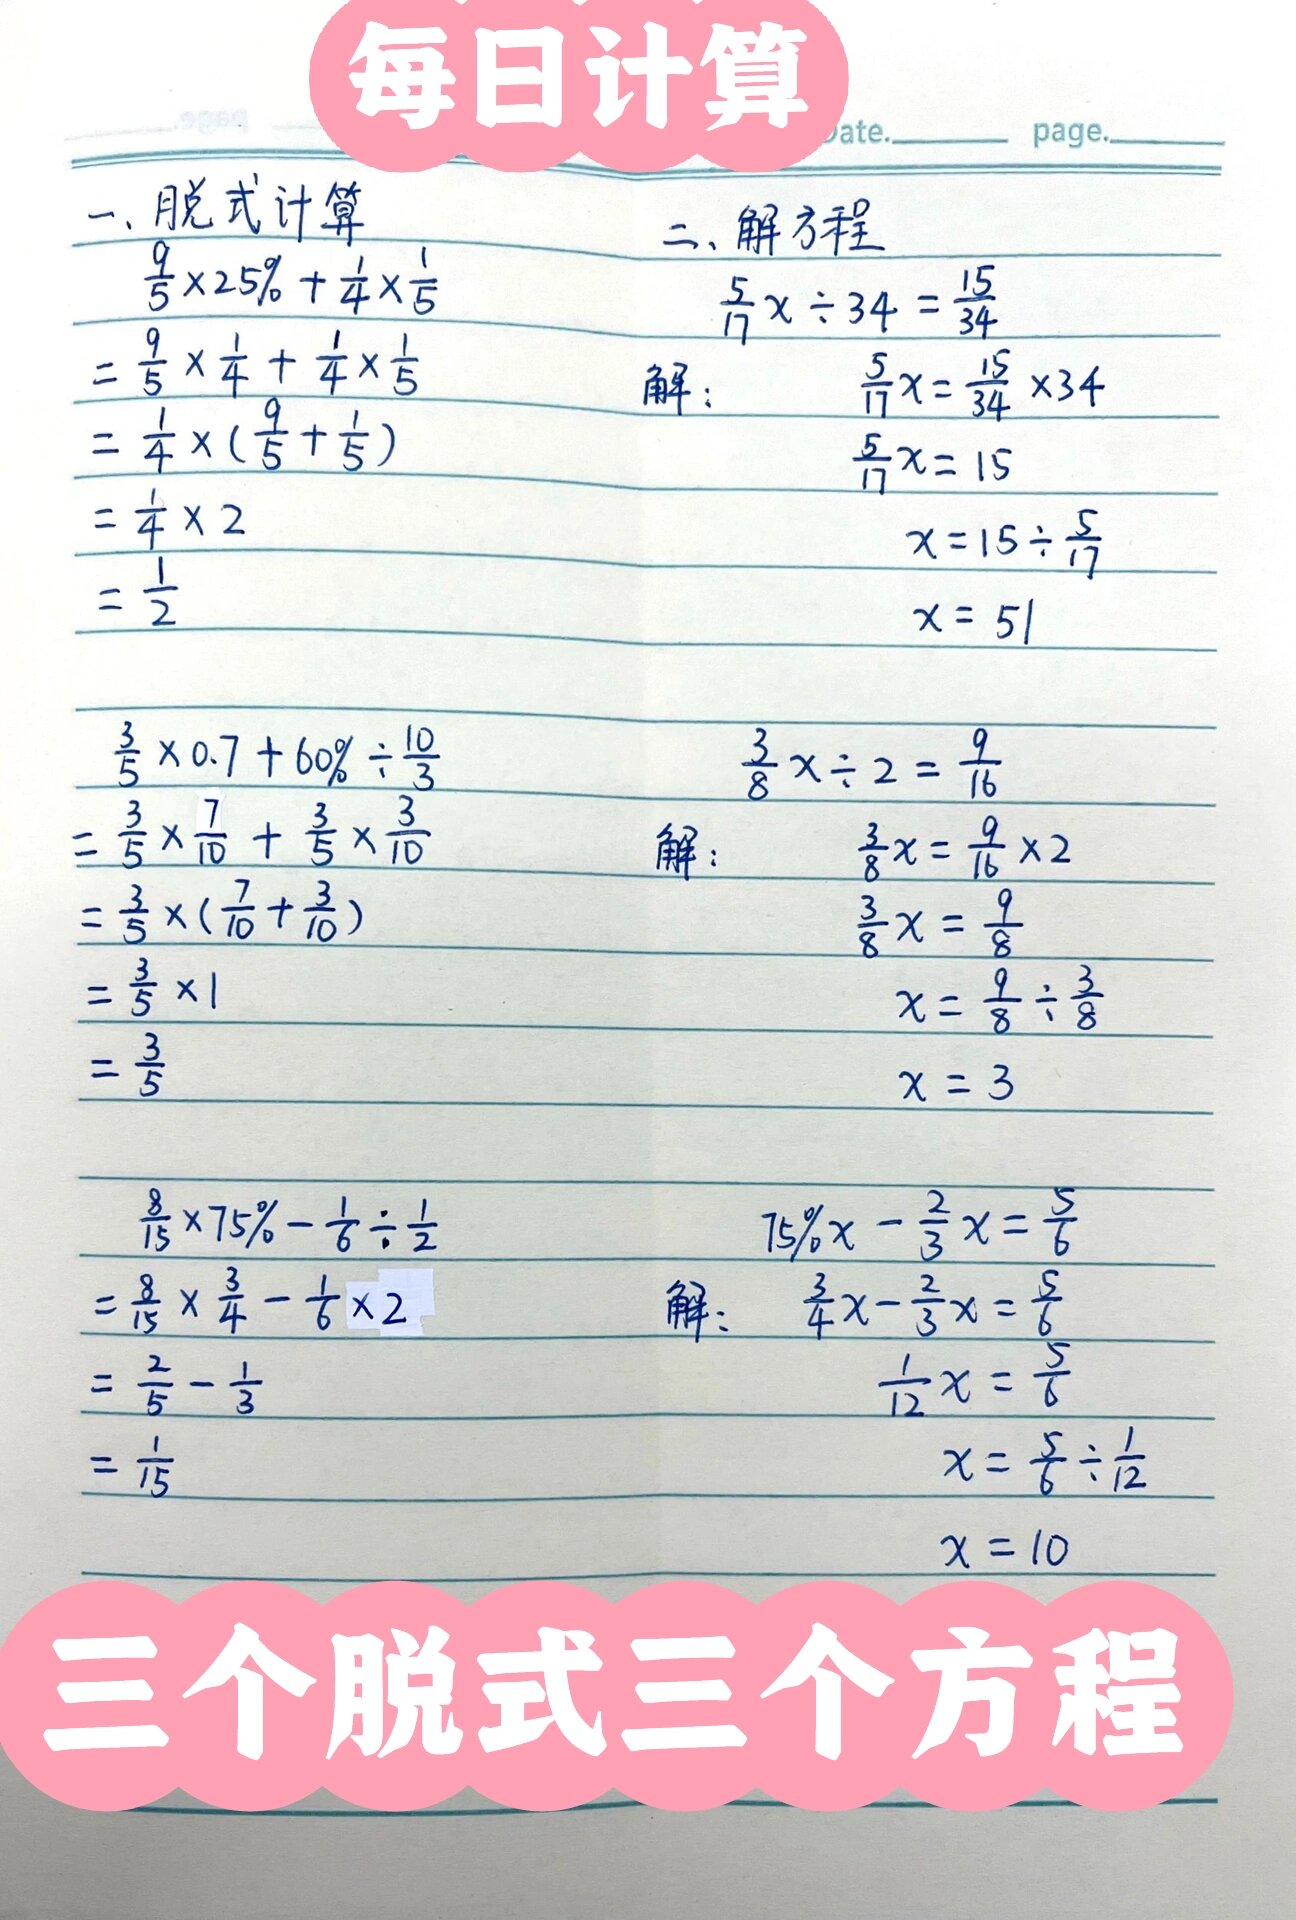 每日计算
Date. page.
一、脱式计算
9/5×25%+1/4×1/5
=9/5×1/4+1/4×1/5
=1/4×(9/5+1/5)
=1/4×2
=1/2
3/5×0.7+60%÷10/3
=3/5×7/10+3/5×3/10
=3/5×(7/10+3/10)
=3/5×1
=3/5
8/15×75%-1/6÷1/2
=8/15×3/4-1/6×2
=2/5-1/3
=1/15
二、解方程
5/17x÷34=15/34
解: 5/17x=15/34×34
5/17x=15
x=15÷5/17
x=51
3/8x÷2=9/16
解: 3/8x=9/16×2
3/8x=9/8
x=9/8÷3/8
x=3
75%x-2/3x=5/6
解: 3/4x-2/3x=5/6
1/12x=5/6
x=5/6÷1/12
x=10
三个脱式三个方程